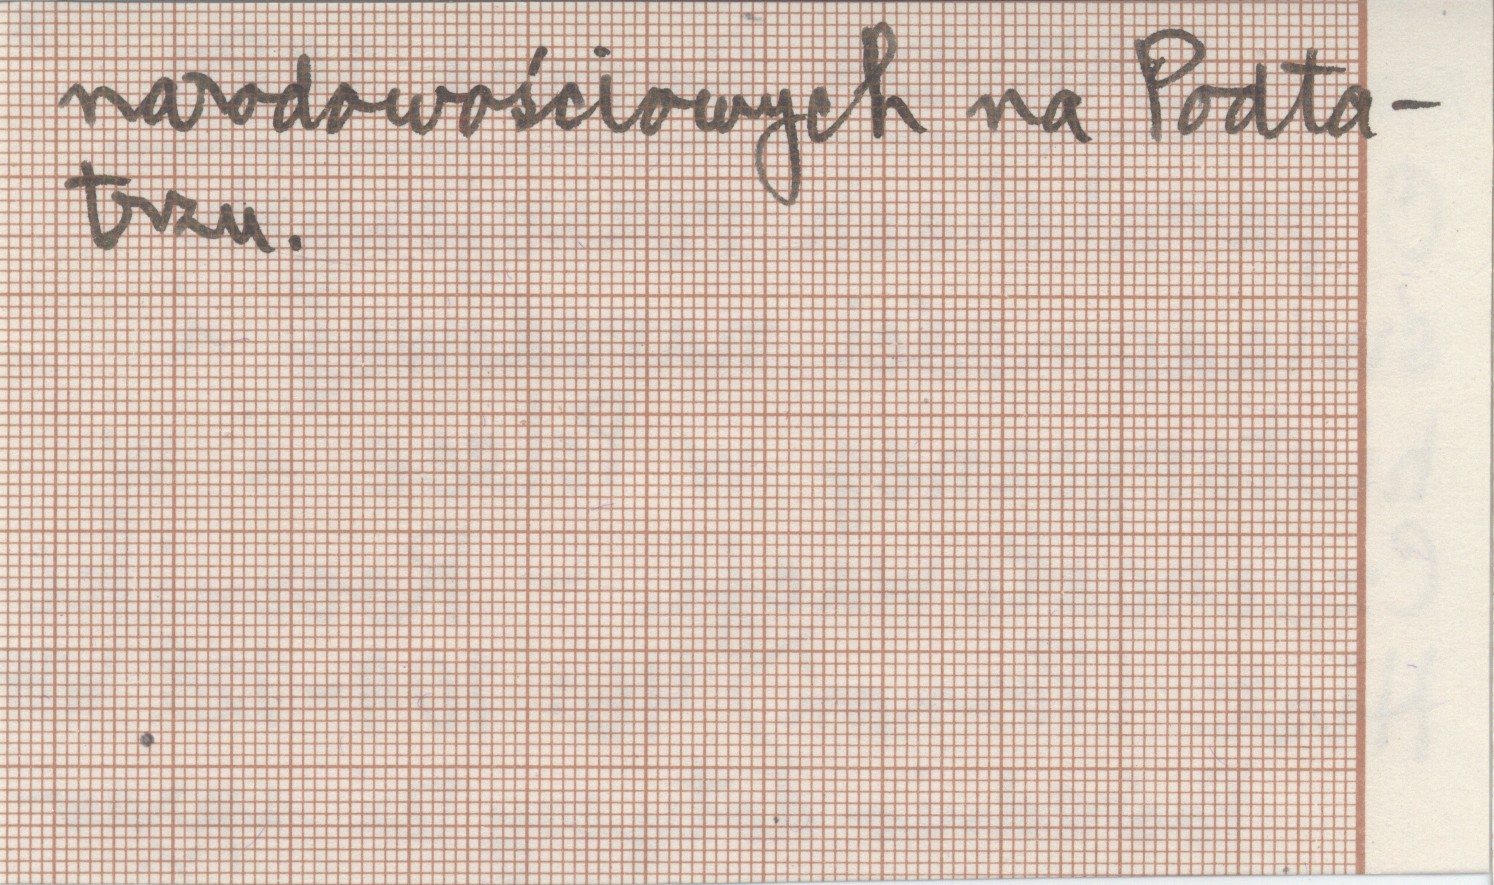 narodowościowych na Podta-
trzu.